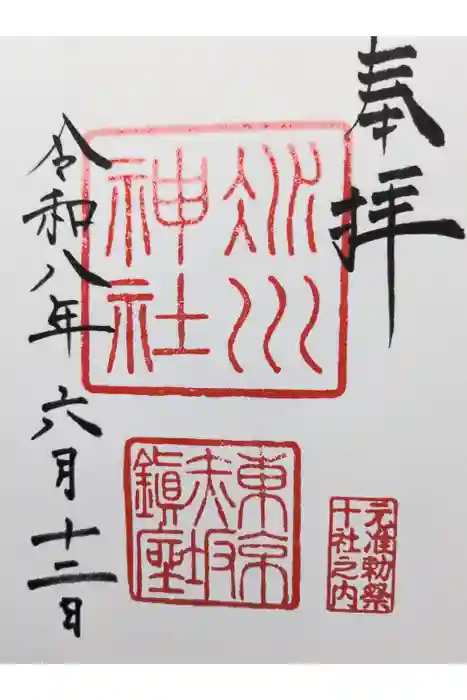 奉拝
氷川
神社
東京
赤坂
鎮座
元准勅祭
十社之内
令和八年 六月十三日